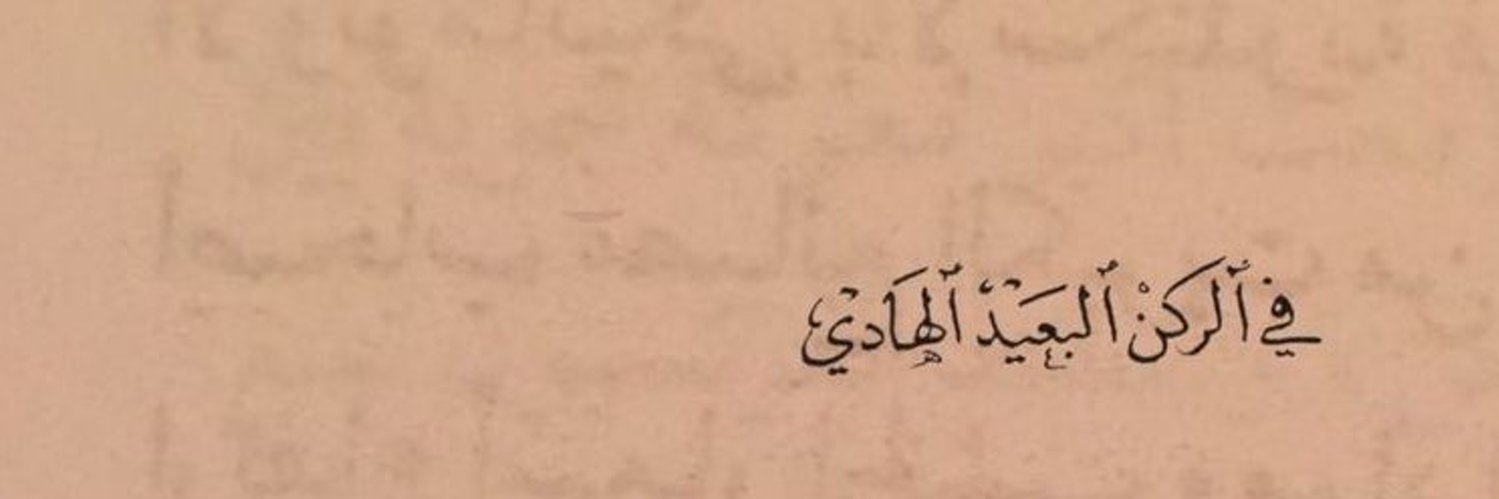 في ٱلركنْ ٱلبعيدْ ٱلهَادي